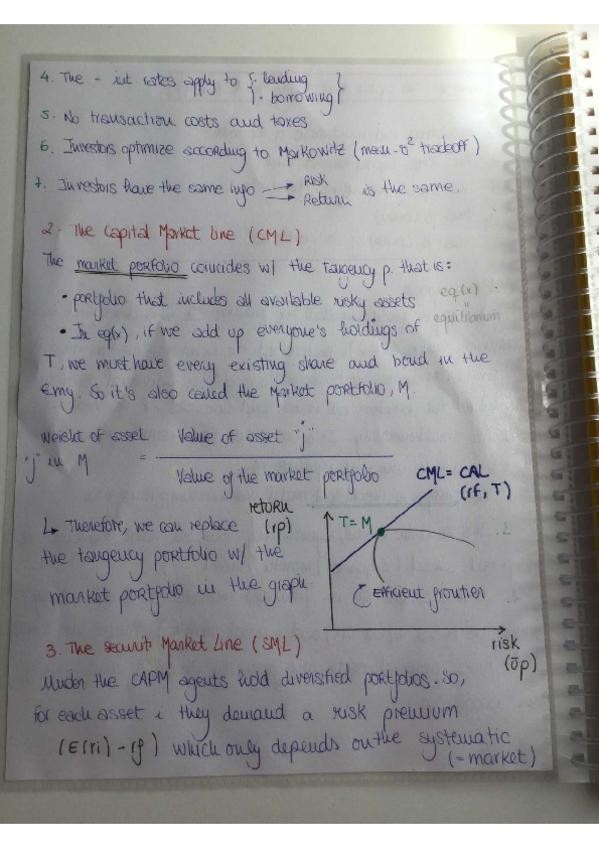 4. The = int rates apply to { · lending
· borrowing }
5. No transaction costs and taxes
6. Investors optimize according to Markowitz (mean-σ² tradeoff)
7. Investors have the same info → Risk
→ Return is the same.
2. The Capital Market Line (CML)
The market portfolio coincides w/ the tangency p. that is:
• portfolio that includes all available risky assets
eq(x) = equilibrium
• In eq(x), if we add up everyone's holdings of
T, we must have every existing share and bond in the
Emy. So it's also called the Market portfolio, M.
Weight of asset "j" in M = Value of asset "j"
Value of the market portfolio
↳ Therefore, we can replace
the tangency portfolio w/ the
market portfolio in the graph
return (rp)
CML = CAL (rf, T)
T = M
Efficient frontier
risk (σp)
3. The Securit Market Line (SML)
Under the CAPM agents hold diversified portfolios. So,
for each asset i they demand a risk premium
(E(ri) - rf) which only depends on the systematic
(= market)